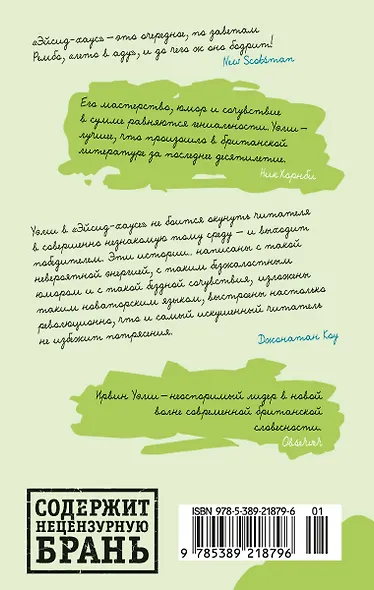 «Эйсид-хаус» — это очередное, по заветам
Рембо, «лето в аду», и до чего ж оно бодрит!
New Scotsman
Его мастерство, юмор и сочувствие
в сумме равняются гениальности. Уэлш —
лучшее, что произошло в британской
литературе за последнее десятилетие.
Ник Хорнби
Уэлш в «Эйсид-хаусе» не боится окунуть читателя
в совершенно незнакомую тому среду — и выходит
победителем. Эти истории.. написаны с такой
невероятной энергией, с таким безжалостным
юмором и с такой бездной сочувствия, изложены
таким новаторским языком, выстроены настолько
революционно, что и самый искушенный читатель
не избежит потрясения.
Джонатан Коу
Ирвин Уэлш — неоспоримый лидер в новой
волне современной британской
словесности.
Observer
СОДЕРЖИТ
НЕЦЕНЗУРНУЮ
БРАНЬ
ISBN 978-5-389-21879-6
01
9 785389 218796